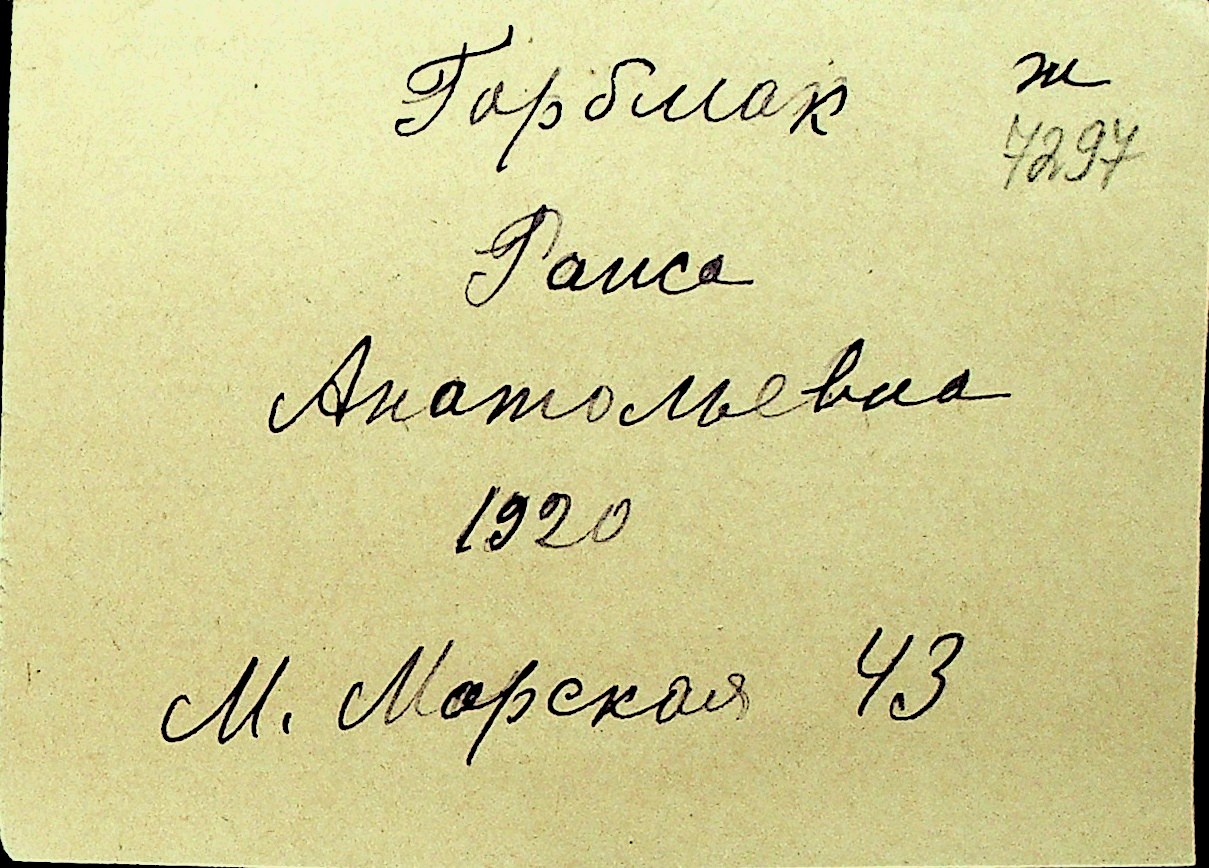 Горбмак ж
7297
Раиса
Анатольевна
1920
М. Морская 43